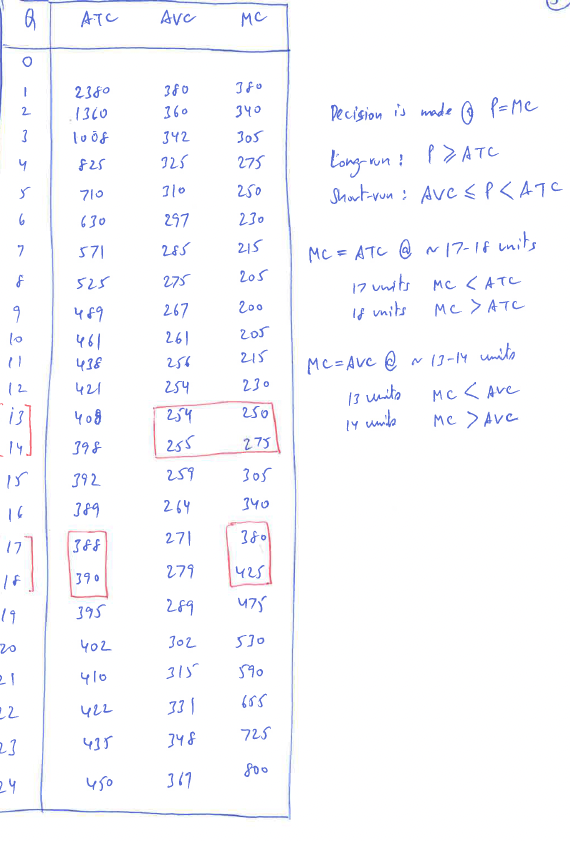 Q ATC AVC MC
0
1 2380 380 380
2 1360 360 340
3 1008 342 305
4 825 325 275
5 710 310 250
6 630 297 230
7 571 285 215
8 525 275 205
9 489 267 200
10 461 261 205
11 438 256 215
12 421 254 230
13 408 254 250
14 398 255 275
15 392 259 305
16 389 264 340
17 388 271 380
18 390 279 425
19 395 289 475
20 402 302 530
21 410 315 590
22 422 331 655
23 435 348 725
24 450 367 800
Decision is made @ P=MC
Long-run : P ⩾ ATC
Short-run : AVC ≤ P < ATC
MC = ATC @ ~ 17-18 units
17 units MC < ATC
18 units MC > ATC
MC = AVC @ ~ 13-14 units
13 units MC < AVC
14 units MC > AVC